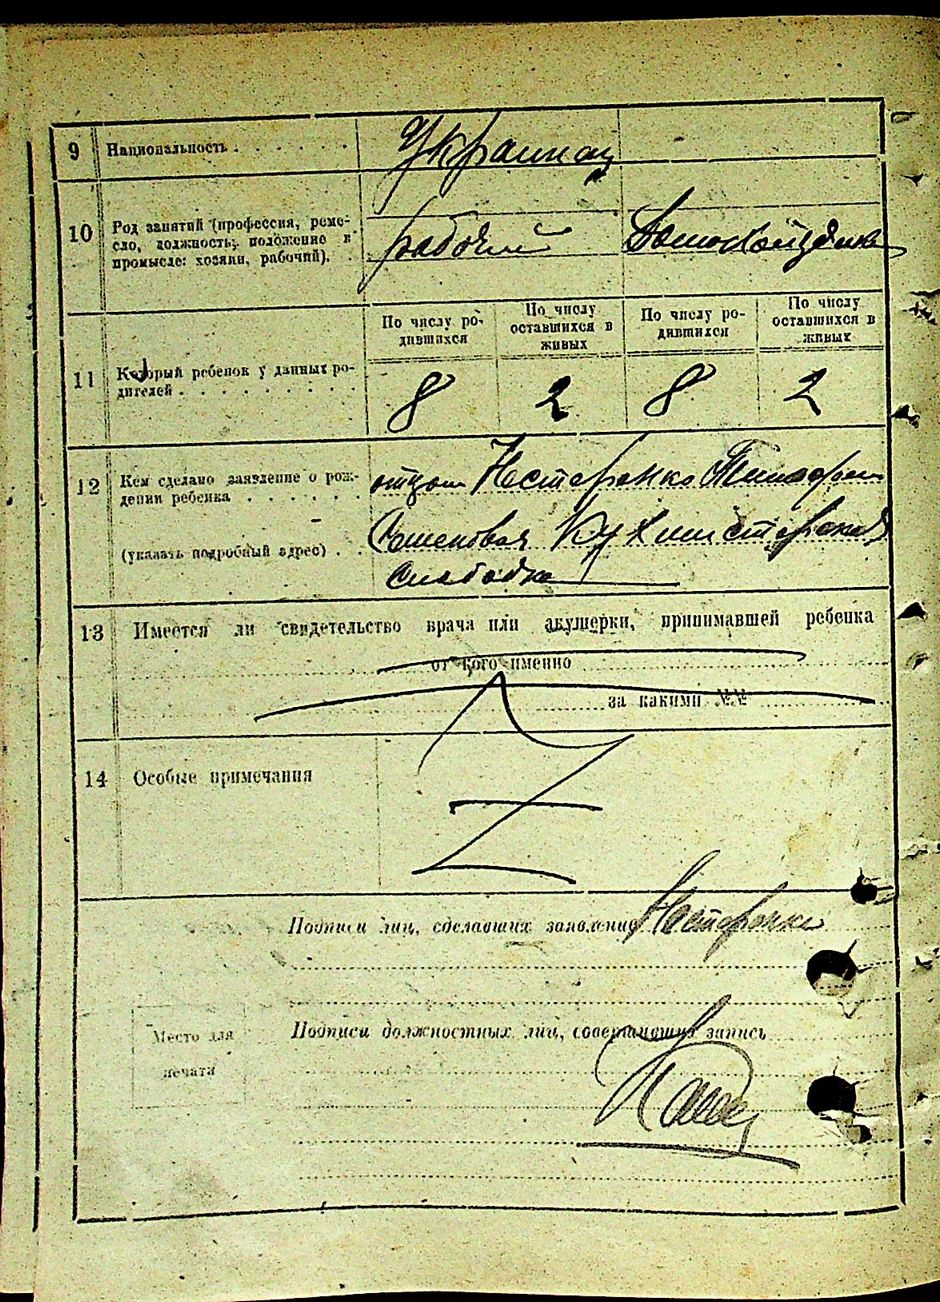 9 Национальность . . . . . . Украинцы
10 Род занятий (профессия, реме-
сло, должность; положение в
промысле: хозяин, рабочий). .
рабочий Домохозяйка
По числу ро-
дившихся
По числу
оставшихся в
живых
По числу ро-
дившихся
По числу
оставшихся в
живых
11 Который ребенок у данных ро-
дителей . . . . . . . . .
8 2 8 2
12 Кем сделано заявление о рож-
дении ребенка . . . . . .
отцом Нестеренко Тимофеем
(указать подробный адрес) . .
Кухмистерская
слабодка
13 Имеется ли свидетельство врача или акушерки, принимавшей ребенка
от кого именно
за какими №№
14 Особые примечания
Z
Подписи лиц, сделавших заявление Нестеренко
Подписи должностных лиц, совершивших запись
Место для
печати